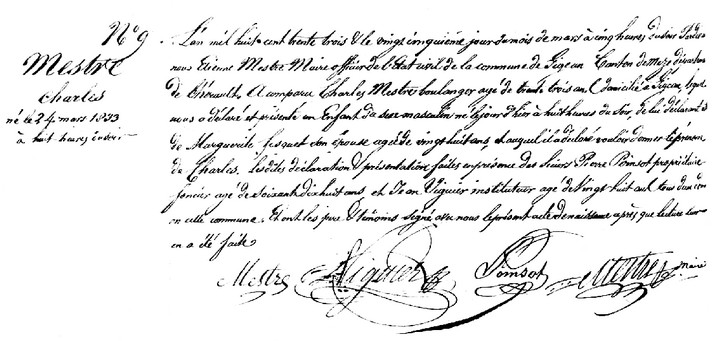 N° 9
Mestre
Charles
né le 24 mars 1833
à huit heures du soir
L'an mil huit cent trente trois & le vingt cinquième jour du mois de mars à cinq heures du soir Pardevant
nous Etienne Mestre Maire officier de l'état civil de la commune de Pigean Canton de Mèze département
de l'hérault, A comparu Charles Mestre boulanger agé de trente trois ans domicilié a Pigean, lequel
nous a déclaré et présenté un Enfant du sexe masculin né le jour d'hier à huit heures du soir, de lui déclarant &
de Marguerite fesquet son épouse agée de vingt huit ans, et auquel il a déclaré vouloir donner le prénom
de Charles. Lesdites déclaration & présentation faites en présence des Sieurs Pierre Poinsot propriétaire
foncier agé de soixante dix huit ans et Jean Viguier instituteur agé de Vingt huit ans tous
en cette commune. Et ont les père & témoins signé avec nous le présent acte de naissance après que lecture
en a été faite
Mestre Viguier Poinsot Mestre maire